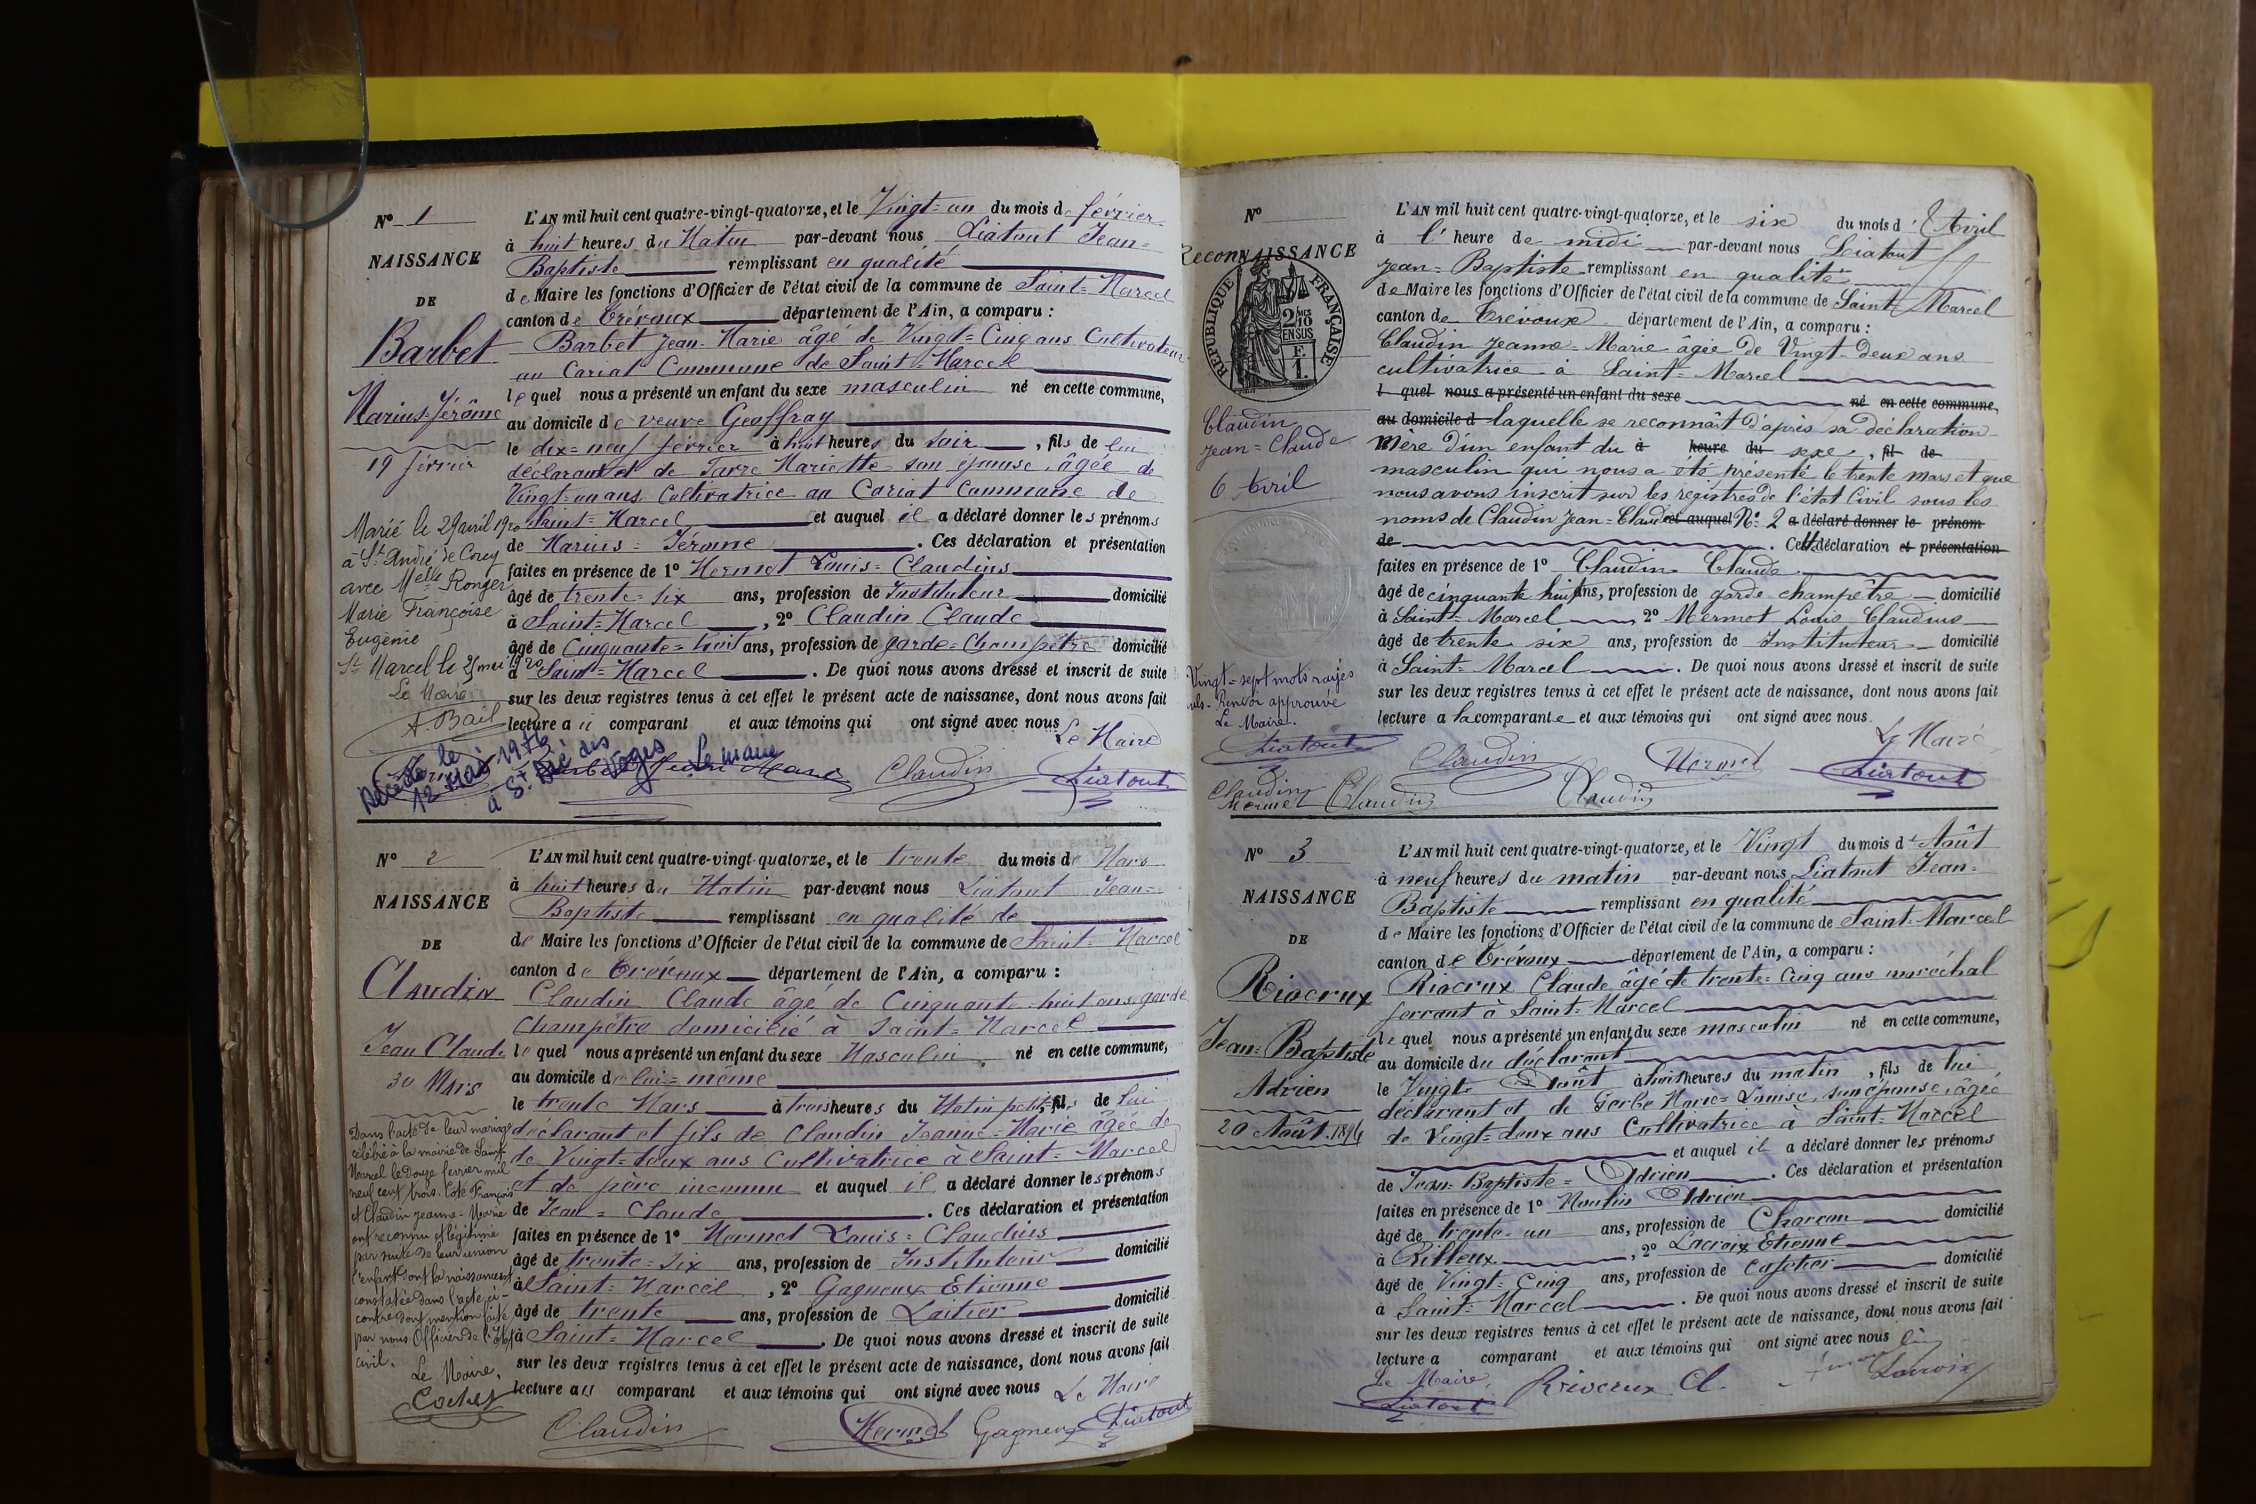 N° 1
NAISSANCE
DE
Barbet
Marius-Jérôme
19 février
Marié le 29 avril 1920
à St André de Corcy
avec Melle Ronger
Marie Françoise
Eugénie
St Marcel le 25 mai 1920
Le Maire
A. Bail
Décédé le
12 Mai 1976
à St Dié des
Vosges
Le maire
L'AN mil huit cent quatre-vingt-quatorze, et le Vingt=un du mois de février
à huit heures du Matin par-devant nous Liatout Jean=
Baptiste remplissant en qualité
de Maire les fonctions d'Officier de l'état civil de la commune de Saint=Marcel
canton de Trévoux département de l'Ain, a comparu :
Barbet Jean-Marie âgé de Vingt=Cinq ans Cultivateur
au Cariat Commune de Saint-Marcel
lequel nous a présenté un enfant du sexe masculin né en cette commune,
au domicile de veuve Geoffray
le dix=neuf février à huit heures du soir , fils de lui
déclarant et de Tarre Mariette son épouse, âgée de
Vingt=un ans Cultivatrice au Cariat Commune de
Saint=Marcel et auquel il a déclaré donner les prénoms
de Marius=Jérome . Ces déclaration et présentation
faites en présence de 1° Mermet Louis=Claudius
âgé de trente=six ans, profession de Instituteur domicilié
à Saint=Marcel , 2° Claudin Claude
âgé de Cinquante=huit ans, profession de garde=Champêtre domicilié
à Saint=Marcel . De quoi nous avons dressé et inscrit de suite
sur les deux registres tenus à cet effet le présent acte de naissance, dont nous avons fait
lecture au comparant et aux témoins qui ont signé avec nous
Le Maire
Claudin Liatout
N° 2
NAISSANCE
DE
Claudin
Jean Claude
30 Mars
Dans l'acte de leur mariage
célébré à la mairie de Saint-
Marcel le douze février mil
neuf cent trois. Coté François
et Claudin Jeanne-Marie
ont reconnu et légitimé
par suite de leur union
l'enfant dont la naissance est
constatée dans l'acte ci-
contre dont mention faite
par nous Officier de l'Etat
civil.
Le Maire,
Cochet
L'AN mil huit cent quatre-vingt-quatorze, et le trente du mois de Mars
à huit heures du Matin par-devant nous Liatout Jean=
Baptiste remplissant en qualité de
de Maire les fonctions d'Officier de l'état civil de la commune de Saint=Marcel
canton de Trévoux département de l'Ain, a comparu :
Claudin Claude âgé de Cinquante-huit ans, garde
Champêtre domicilié à Saint=Marcel
lequel nous a présenté un enfant du sexe Masculin né en cette commune,
au domicile de lui=même
le trente Mars à trois heures du Matin petit fils de lui
déclarant et fils de Claudin Jeanne=Marie âgée de
de Vingt=deux ans Cultivatrice à Saint=Marcel
et de père inconnu et auquel il a déclaré donner les prénoms
de Jean=Claude . Ces déclaration et présentation
faites en présence de 1° Mermet Louis=Claudius
âgé de trente=six ans, profession de Instituteur domicilié
à Saint=Marcel , 2° Gagneux Etienne
âgé de trente ans, profession de Laitier domicilié
à Saint=Marcel . De quoi nous avons dressé et inscrit de suite
sur les deux registres tenus à cet effet le présent acte de naissance, dont nous avons fait
lecture aux comparant et aux témoins qui ont signé avec nous Le Maire
Claudin Mermet Gagneux Liatout
N°
ReconNAISSANCE
RÉPUBLIQUE FRANÇAISE
2/10 MES EN SUS
F. 1.
Claudin
Jean=Claude
6 Avril
Vingt=sept mots rayés
nuls. Renvoi approuvé
Le Maire.
Liatout
Claudin
Mermet
L'AN mil huit cent quatre-vingt-quatorze, et le six du mois d'Avril
à l'heure de midi par-devant nous Liatout
Jean=Baptiste remplissant en qualité
de Maire les fonctions d'Officier de l'état civil de la commune de Saint-Marcel
canton de Trevoux département de l'Ain, a comparu :
Claudin Jeanne=Marie âgée de Vingt-deux ans
cultivatrice à Saint=Marcel
l quel nous a présenté un enfant du sexe né en cette commune,
au domicile d laquelle se reconnaît d'après sa déclaration
Mère d'un enfant du à heure du sexe , fil de
masculin qui nous a été présenté le trente mars et que
nous avons inscrit sur les registres de l'état Civil sous les
noms de Claudin Jean=Claude et auquel N° 2 a déclaré donner le prénom
de . Cette déclaration et présentation
faites en présence de 1° Claudin Claude
âgé de cinquante huit ans, profession de garde champêtre domicilié
à Saint=Marcel 2° Mermet Louis Claudius
âgé de trente six ans, profession de Instituteur domicilié
à Saint=Marcel . De quoi nous avons dressé et inscrit de suite
sur les deux registres tenus à cet effet le présent acte de naissance, dont nous avons fait
lecture a la comparante et aux témoins qui ont signé avec nous.
Le Maire
Claudin Mermet Liatout
Claudin Claudin
N° 3
NAISSANCE
DE
Riocrux
Jean=Baptiste
Adrien
20 Août 1894
L'AN mil huit cent quatre-vingt-quatorze, et le Vingt du mois d'Août
à neuf heures du matin par-devant nous Liatout Jean=
Baptiste remplissant en qualité
de Maire les fonctions d'Officier de l'état civil de la commune de Saint=Marcel
canton de Trévoux département de l'Ain, a comparu :
Riocrux Claude âgé de trente=cinq ans maréchal
ferrant à Saint=Marcel
lequel nous a présenté un enfant du sexe masculin né en cette commune,
au domicile du déclarant
le Vingt Août à huit heures du matin , fils de lui
déclarant et de Gerbe Marie=Louise, son épouse, âgée
de Vingt=deux ans Cultivatrice à Saint=Marcel
et auquel il a déclaré donner les prénoms
de Jean=Baptiste=Adrien . Ces déclaration et présentation
faites en présence de 1° Moulin Adrien
âgé de trente-un ans, profession de Charron domicilié
à Rillieux , 2° Lacroix Etienne
âgé de Vingt=Cinq ans, profession de Cafetier domicilié
à Saint=Marcel . De quoi nous avons dressé et inscrit de suite
sur les deux registres tenus à cet effet le présent acte de naissance, dont nous avons fait
lecture a comparant et aux témoins qui ont signé avec nous
Le Maire,
Liatout Riocrux Cl. Lacroix